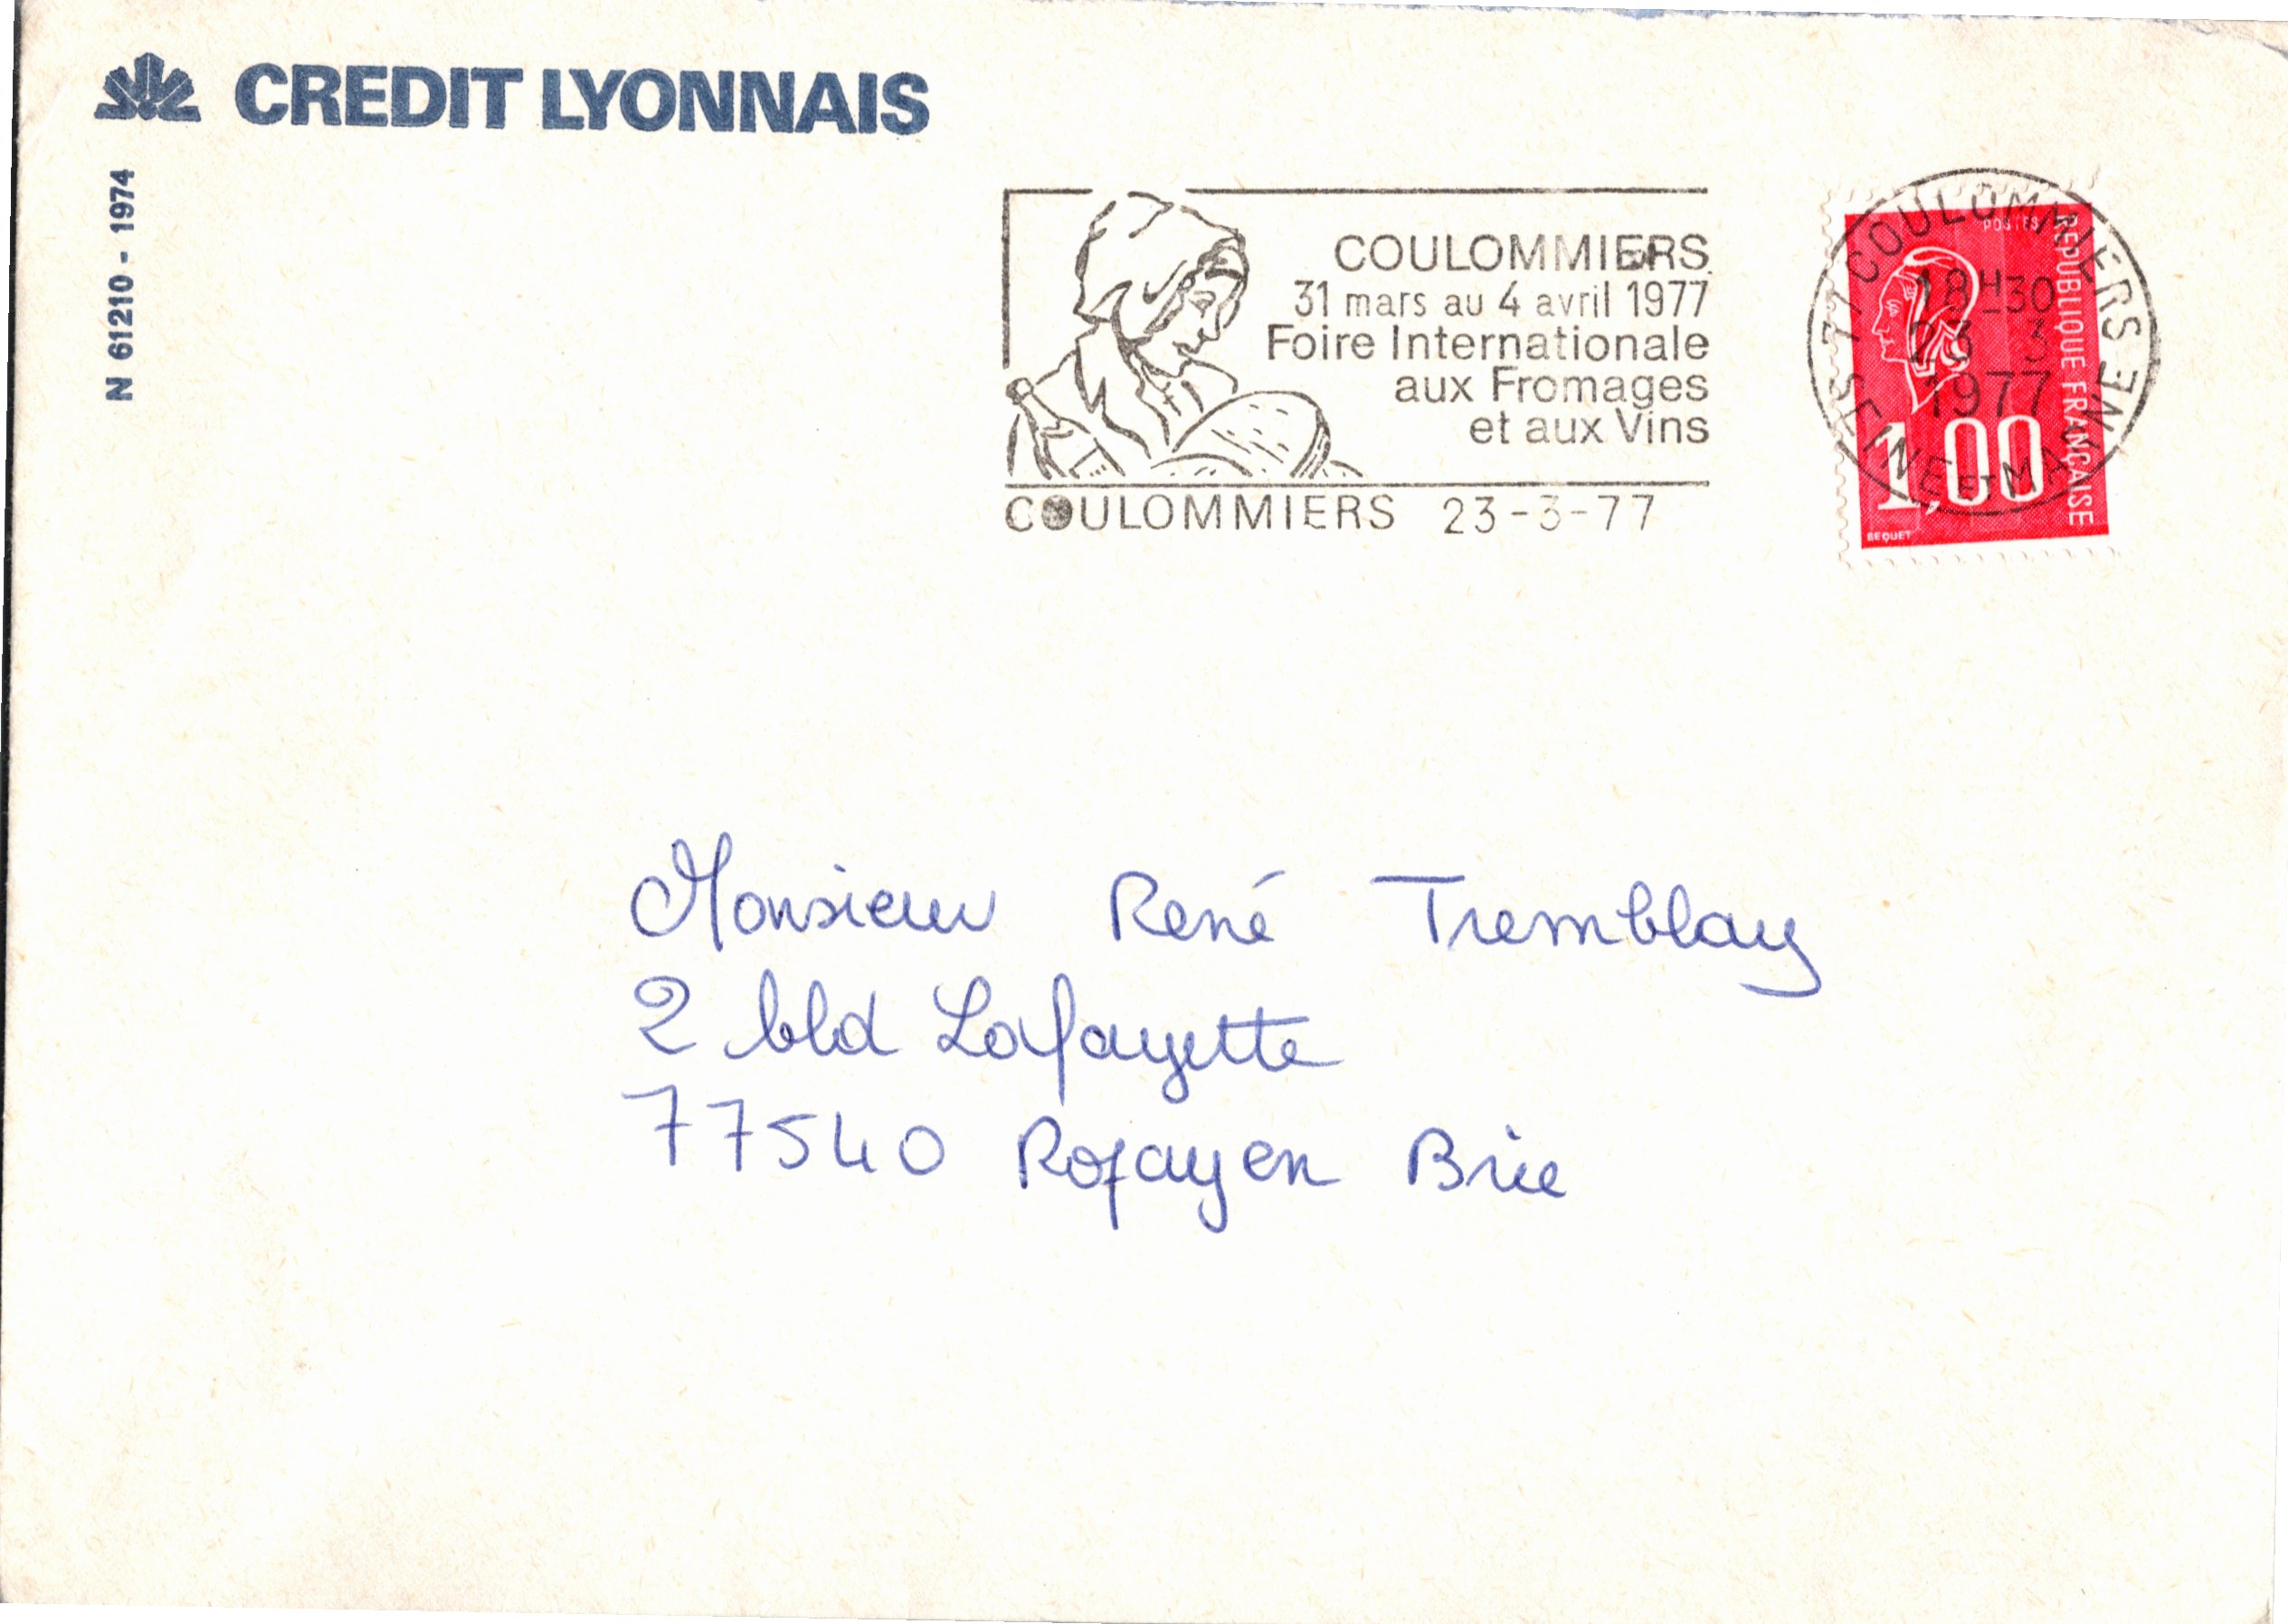 CREDIT LYONNAIS
N 61210 - 1974
COULOMMIERS
31 mars au 4 avril 1977
Foire Internationale
aux Fromages
et aux Vins
COULOMMIERS 23-3-77
77 COULOMMIERS
18H30
23 3
1977
SEINE ET MARNE
POSTES
REPUBLIQUE FRANÇAISE
1,00
BEQUET
Monsieur René Tremblay
2 bld Lafayette
77540 Rozay en Brie